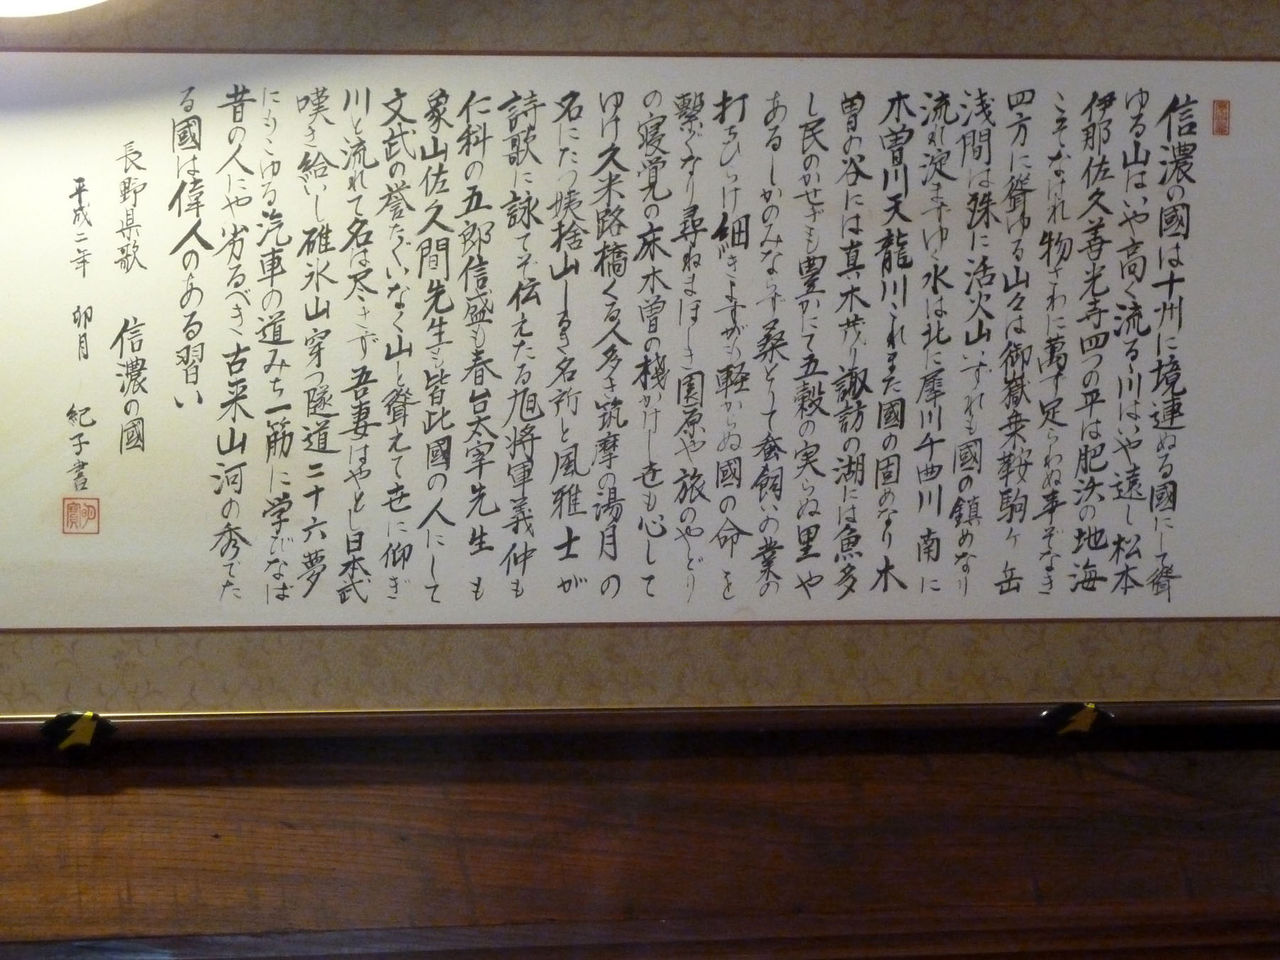 信濃の國は十州に境連ぬる國にして聳
ゆる山はいや高く流るる川はいや遠し松本
伊那佐久善光寺四つの平は肥沃の地海
こそなけれ物さわに萬ず足らわぬ事ぞなき
四方に聳ゆる山々は御嶽乗鞍駒ヶ岳
浅間は殊に活火山いずれも國の鎮めなり
流れ淀まずゆく水は北に犀川千曲川南に
木曽川天龍川これまた國の固めなり木
曽の谷には真木茂り諏訪の湖には魚多
し民のかせぎも豊かにて五穀の実らぬ里や
あるしかのみならず桑とりて蚕飼いの業の
打ちひらけ細きよすがも軽からぬ國の命を
繋ぐなり尋ねまほしき園原や旅のやどり
の寝覚の床木曽の棧かけし世も心して
ゆけ久米路橋くる人多き筑摩の湯月の
名にたつ姨捨山しるき名所と風雅士が
詩歌に詠てぞ伝えたる旭将軍義仲も
仁科の五郎信盛も春台太宰先生も
象山佐久間先生も皆此國の人にして
文武の誉たぐいなく山と聳えて世に仰ぎ
川と流れて名は尽きず吾妻はやとし日本武
嘆き給いし碓氷山穿つ隧道二十六夢
にもこゆる汽車の道みち一筋に学びなば
昔の人にや劣るべき古来山河の秀でた
る國は偉人のある習い
長野県歌 信濃の國
平成二年 卯月 紀子書